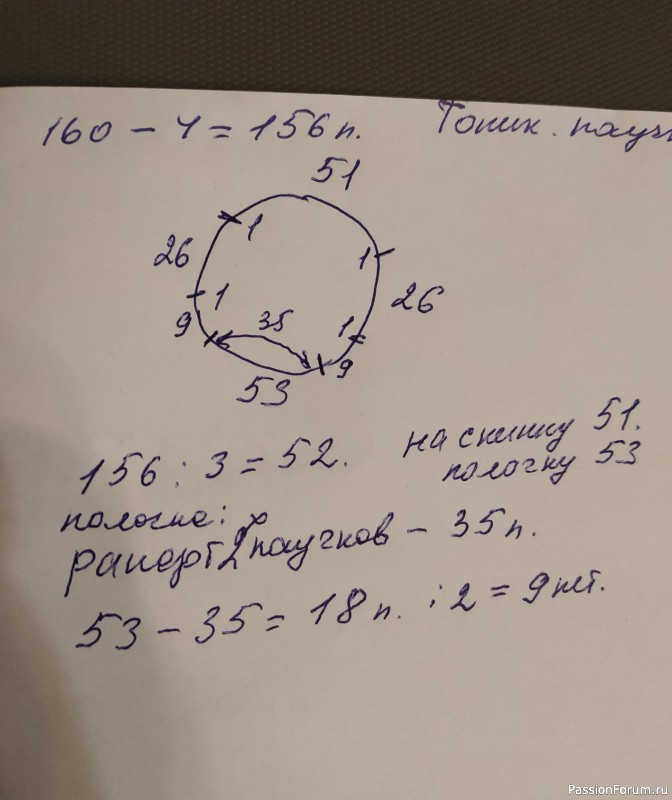 160 - 4 = 156 п.
Топик. пауч
51
1
1
26
26
1
1
9
35
9
53
156 : 3 = 52.
на спинку 51.
полочку 53
полочка:
рапорт 2х паучков - 35 п.
53 - 35 = 18 п. : 2 = 9 пет.
PassionForum.ru